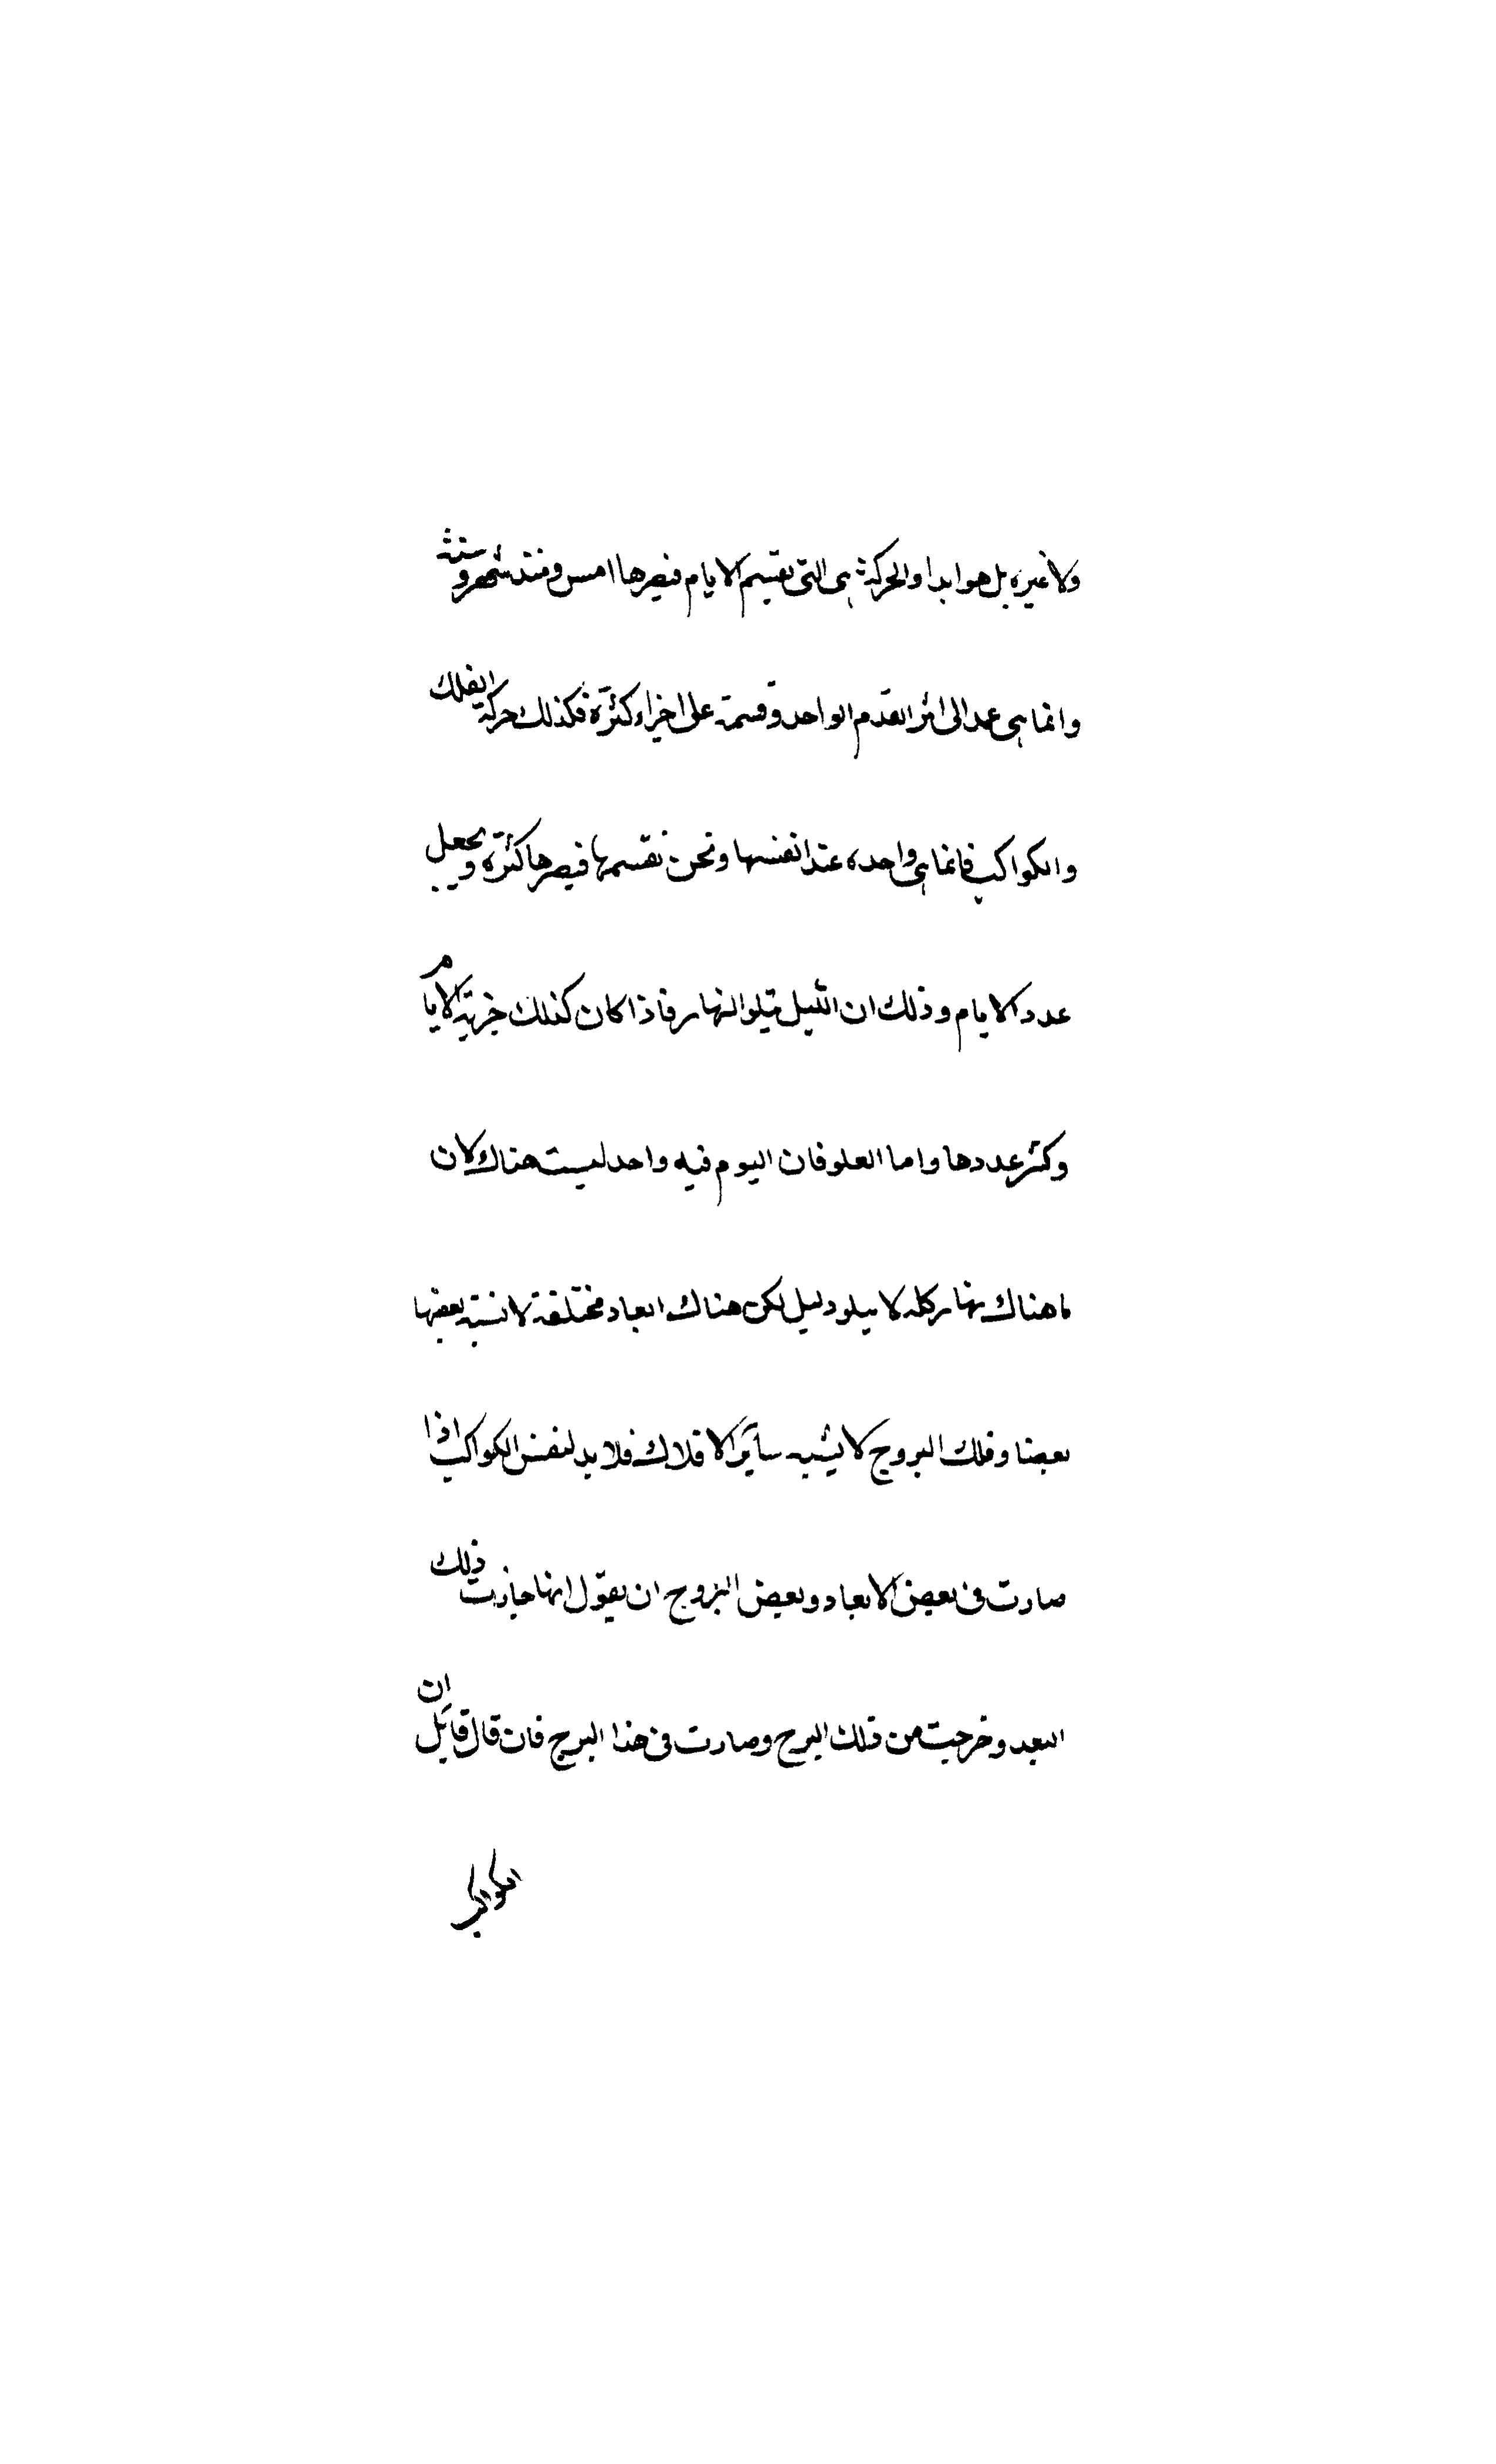 ولا غيره بل هو ابدا والحركة هى التى تقسم الايام فيصرها امس ومنذ شهر وسنة
وانما هى عمد الى اثر القدم الواحد وقسمة على اجزاء كثرة فكذلك حركة الفلك
والكواكب فانما هى واحده عند انفسها ونحن نقسمها فيصرها كثرة ويجعل
عدد الايام وذلك ان الليل يتلو النهار فاذا كان كذلك جزية الايام
وكثر عددها واما العلو فان اليوم فيه واحد ليست هناك لان
ما هناك نهار كله لا يتلوه ليل لكن هناك ابعاد مختلفة لا نسبة بعضها
بعضا وفلك البروج لا يشبه سائر الافلاك فلا بد لنفس الكواكب اذا
صارت فى بعض الابعاد وبعض البروج ان يقول انها جازت ذلك
البعد وخرجت من تلك البرج وصارت فى هذا البرج فان قال قايل ان
الكواكب